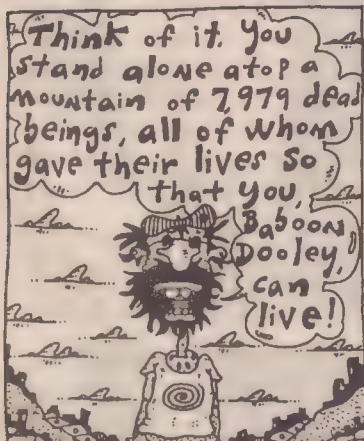 Think of it. You
stand alone atop a
mountain of 7,979 dead
beings, all of whom
gave their lives so
that you,
Baboon
Dooley,
can
live!